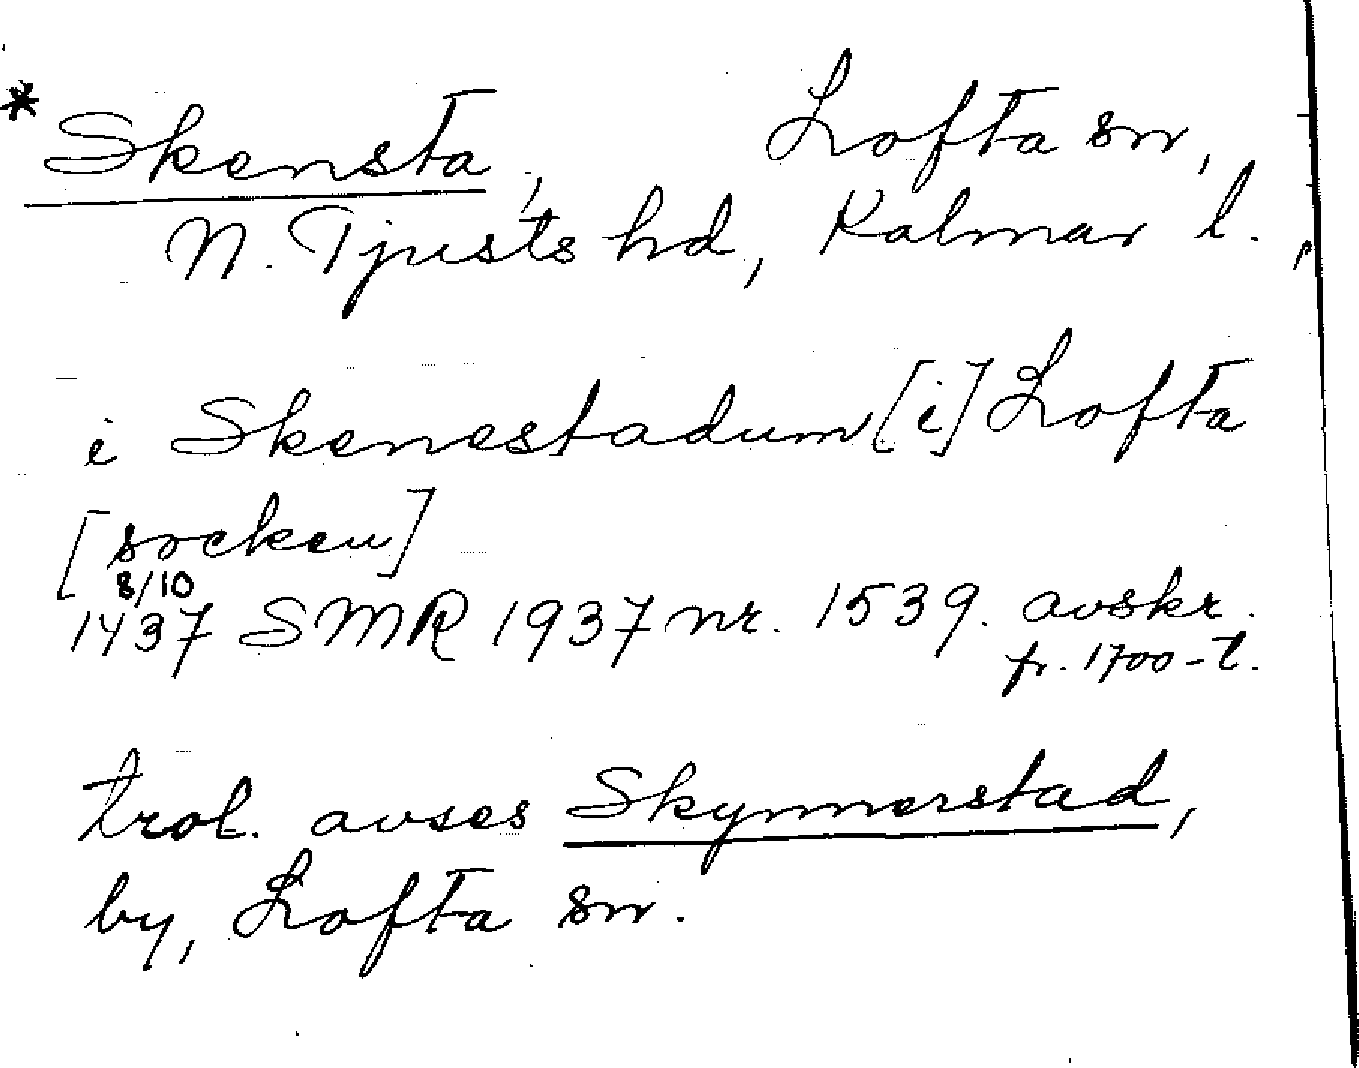 * Skensta, Lofta sn,
N. Tjusts hd, Kalmar l.
i Skenestadum [i] Lofta
[socken]
8/10
1437 SMR 1937 nr. 1539. avskr.
fr. 1700-t.
trol. avses Skynnerstad,
by, Lofta sn.